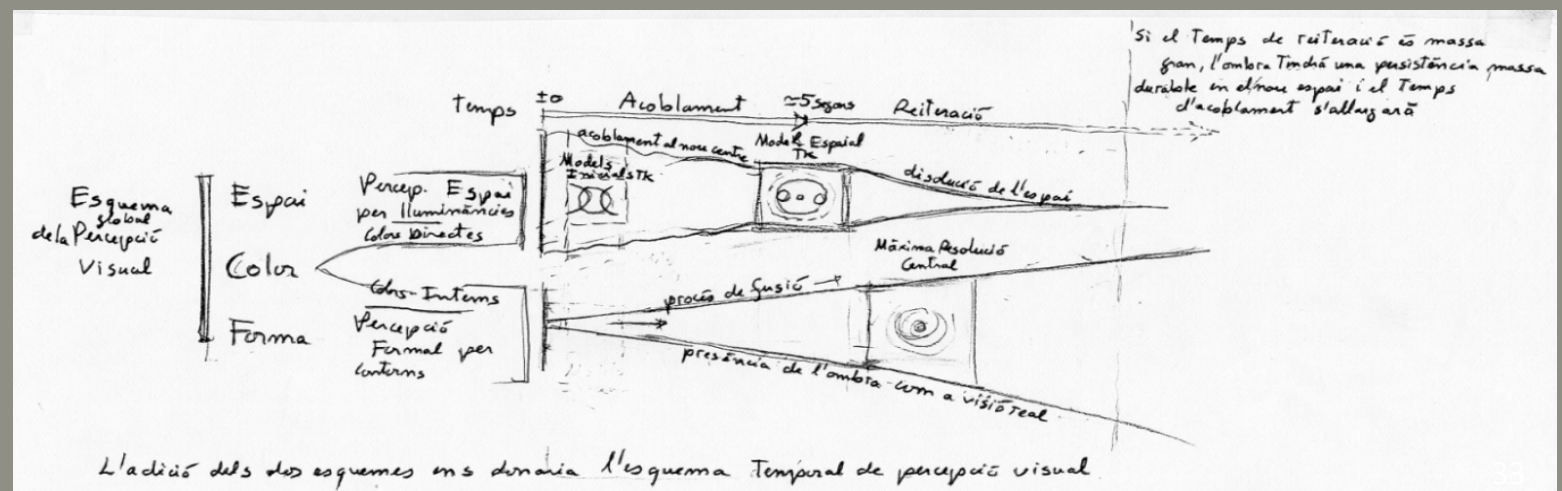 Si el Temps de reiteració és massa
gran, l'ombra Tindrá una persistència massa
durable en el nou espai i el Temps
d'acoblament s'allargará
Temps
±0
Acoblament
≃5 segons
Reiteració
acoblament al nou centre
Models
Inicials TK
Model Espaial
TK
disolució de l'espai
Esquema
global
de la Percepció
Visual
Espai
Color
Forma
Percep. Espai
per Iluminàncies
Colors Directes
Colors-Interns
Percepció
Formal per
Contorns
Màxima Resolució
Central
procés de fusió
presència de l'ombra com a visió real
L'adició dels dos esquemes ens donaria l'esquema Temporal de percepció visual
33